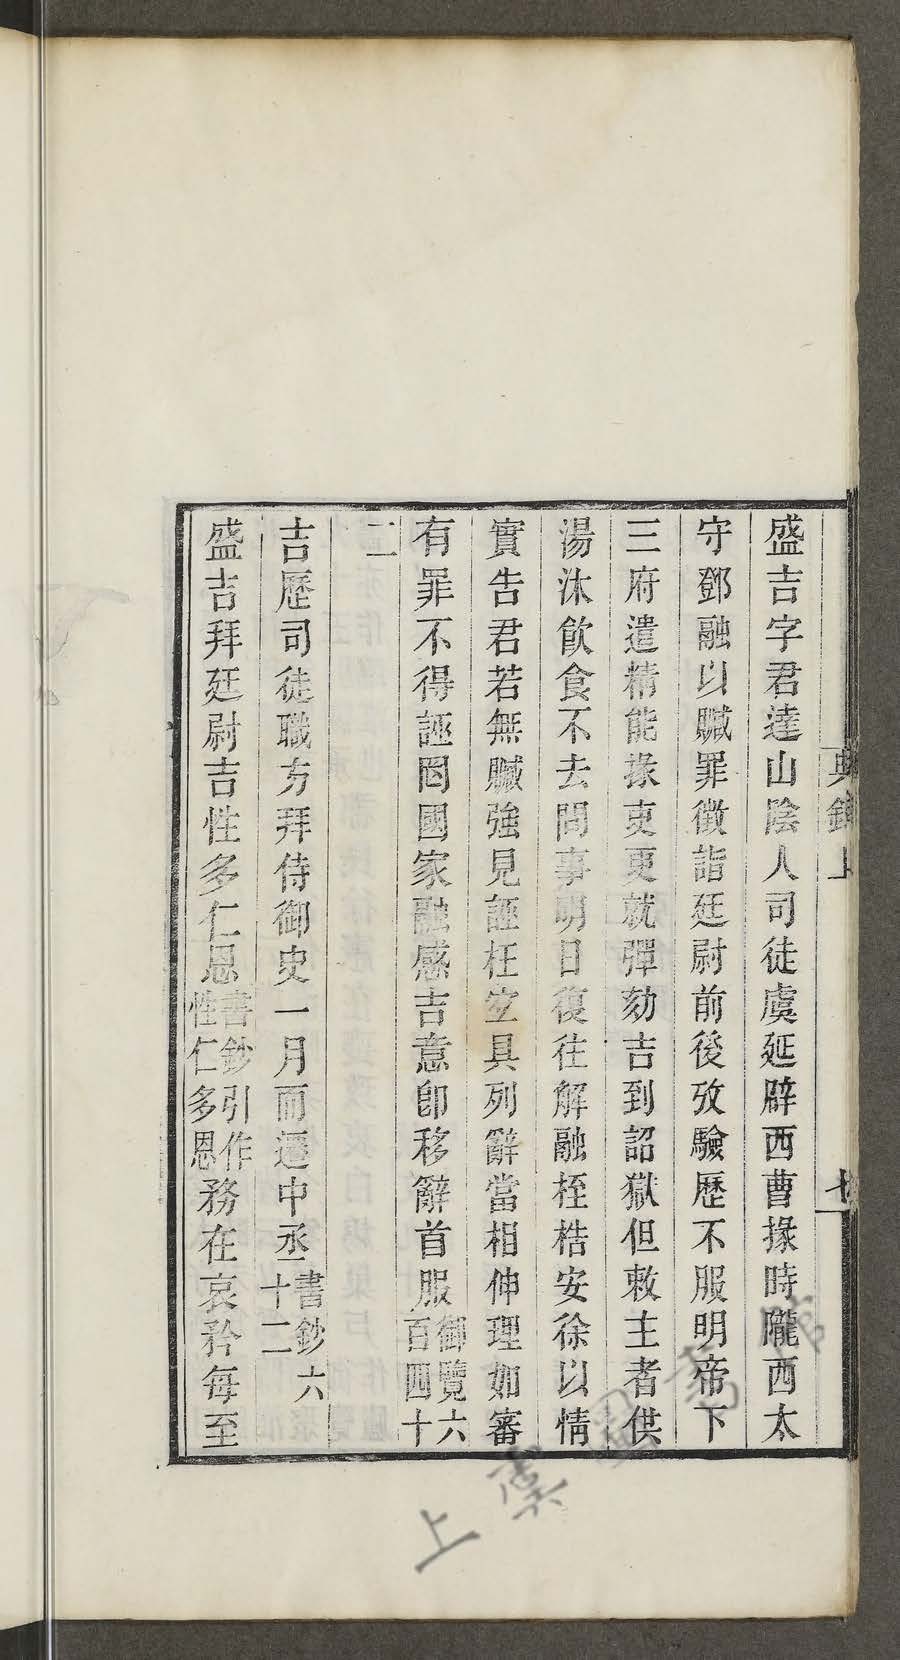 盛吉字君達山陰人司徒虞延辟西曹掾時隴西太
守鄧融以贓罪徵詣廷尉前後攷驗歷不服明帝下
三府遣精能掾吏更就彈劾吉到詔獄但敕主者供
湯沐飲食不去問事明日復往解融桎梏安徐以情
實告君若無贓強見誣枉空具列辭當相伸理如審
有罪不得誣罔國家融感吉意卽移辭首服御覽六百四十
二
吉歷司徒職方拜侍御史一月而遷中丞書鈔六十二
盛吉拜廷尉吉性多仁恩書鈔引作性仁多恩務在哀矜每至
典錄上
上虞